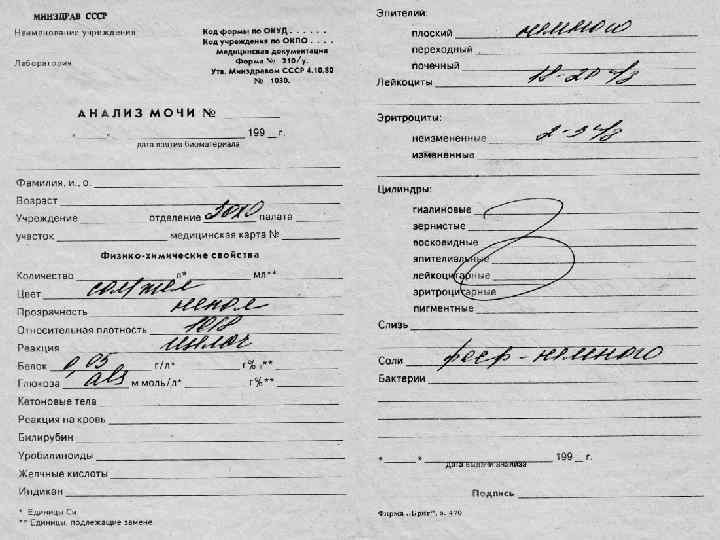 МИНЗДРАВ СССР
Наименование учреждения
Лаборатория
Код формы по ОКУД . . . . . .
Код учреждения по ОКПО . . . .
Медицинская документация
Форма № 210/у.
Утв. Минздравом СССР 4.10.80
№ 1030.
АНАЛИЗ МОЧИ №
" " 199 г.
дата взятия биоматериала
Фамилия, и., о.
Возраст
Учреждение отделение палата
участок медицинская карта №
Физико-химические свойства
Количество л* мл**
Цвет
Прозрачность непол
Относительная плотность 1018
Реакция щелоч
Белок 0,05 г/л* г% **
Глюкоза abs м моль/л* г%**
Кетоновые тела
Реакция на кровь
Билирубин
Уробилиноиды
Желчные кислоты
Индикан
* Единицы Си
** Единицы, подлежащие замене
Эпителий:
плоский немного
переходный
почечный
Лейкоциты 18-20 п/з
Эритроциты:
неизмененные 2-3 п/з
измененные
Цилиндры:
гиалиновые
зернистые
восковидные
эпителиальные
лейкоцитарные
эритроцитарные
пигментные
Слизь
Соли фосф - немного
Бактерии
" " 199 г.
дата выдачи анализа
Подпись
Фирма „Бриг", з. 470